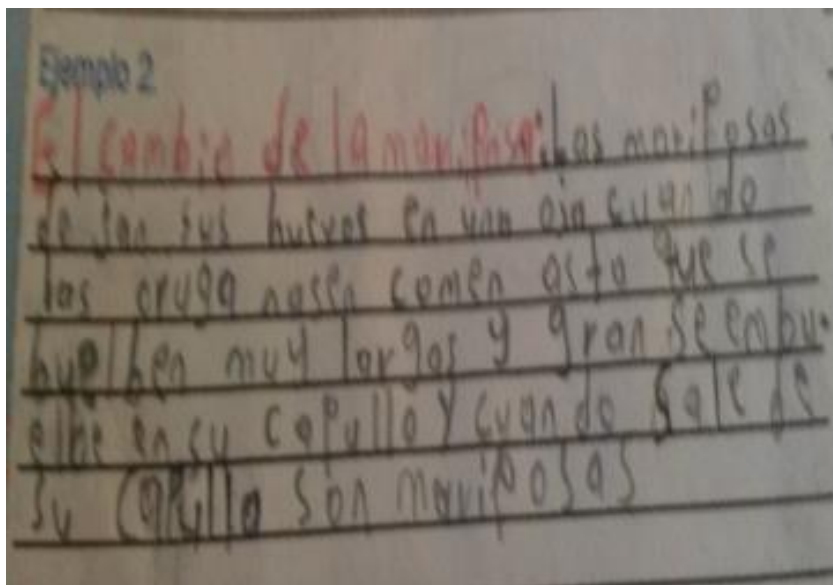 Ejemplo 2
El cambio de la mariposa: Las mariposas
de jan sus huevos en una oja cuando
las oruga nasen comen asta que se
buelben muy largas y gran se embu-
elbe en su capullo y cuando sale de
su capullo son mariposas